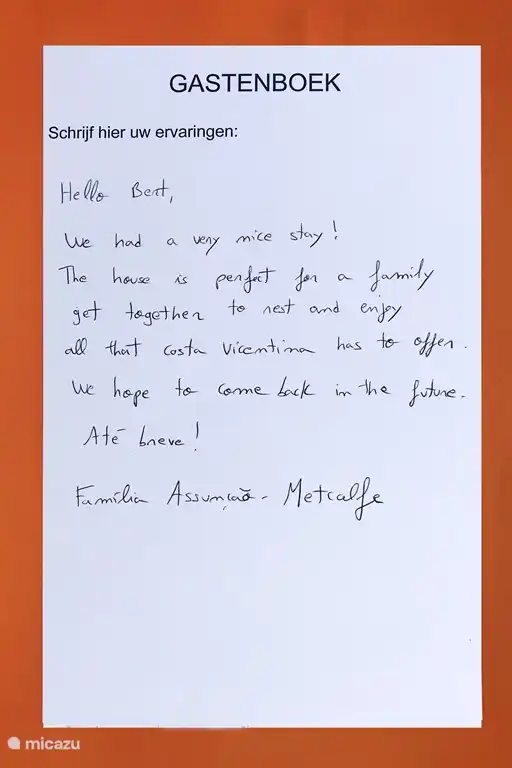 GASTENBOEK
Schrijf hier uw ervaringen:
Hello Bert,
We had a very nice stay!
The house is perfect for a family
get together to rest and enjoy
all that costa Vicentina has to offer.
We hope to come back in the future.
Até breve!
Família Assunção - Metcalfe
micazu